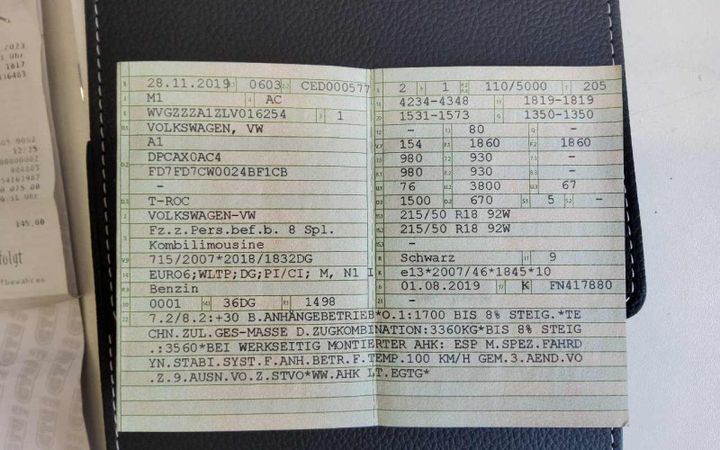 2023
1 Uhr
1817
116483
145.00
folgt
28.11.2019 0603 CED000577
M1 AC
WVGZZZA1ZLV016254 1
VOLKSWAGEN, VW
A1
DPCAX0AC4
FD7FD7CW0024BF1CB
-
T-ROC
VOLKSWAGEN-VW
Fz.z.Pers.bef.b. 8 Spl.
Kombilimousine
715/2007*2018/1832DG
EURO6;WLTP;DG;PI/CI; M, N1 I
Benzin
0001 36DG 1498
2 1 110/5000 205
4234-4348 1819-1819
1531-1573 1350-1350
- 80 -
154 1860 1860
980 930 -
980 930 -
76 3800 67
1500 670 5 -
215/50 R18 92W
215/50 R18 92W
-
Schwarz 9
e13*2007/46*1845*10
01.08.2019 K FN417880
-
7.2/8.2:+30 B.ANHÄNGEBETRIEB*O.1:1700 BIS 8% STEIG.*TE
CHN.ZUL.GES-MASSE D.ZUGKOMBINATION:3360KG*BIS 8% STEIG
.:3560*BEI WERKSEITIG MONTIERTER AHK: ESP M.SPEZ.FAHRD
YN.STABI.SYST.F.ANH.BETR.F.TEMP.100 KM/H GEM.3.AEND.VO
.Z.9.AUSN.VO.Z.STVO*WW.AHK LT.EGTG*